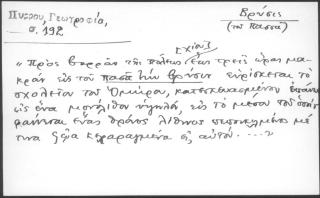 Πύρρου, Γεωγραφία,
σ. 192
Βρύσις
(τοῦ Πασσᾶ)
Χίου
"Πρὸς βορρᾶν τῆς πόλεως ἕως τρεῖς ὥρας μα-
κρὰν εἰς τοῦ πασᾶ τὴν βρύσιν εὑρίσκεται τὸ
σχολεῖον τοῦ Ὁμήρου, κατεσκευασμένον ἐπάνω
εἰς ἕνα μονόλιθον ὑψηλόν, εἰς τὸ μέσον τοῦ ὁποίου
φαίνεται ἕνας θρόνος λίθινος πεποικιλμένος μέ
τινα ζῶα κεχαραγμένα εἰς αὐτόν. ...."